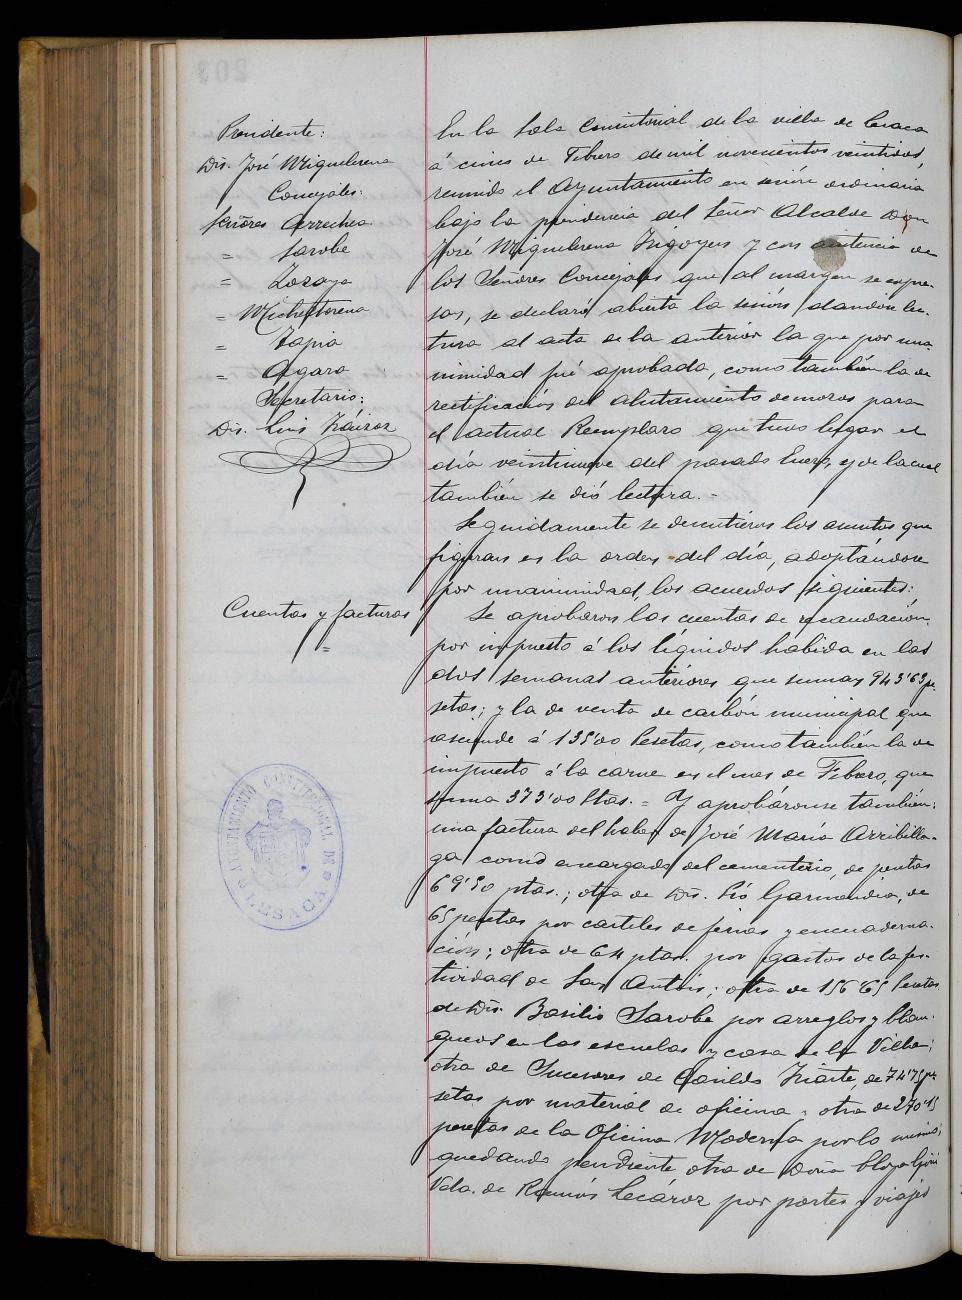 Presidente:
Dn. José Miguelorena
Concejales:
Señores Arrechea
= Sarobe
= Zozaya
= Michelstorena
= Tapia
= Algara
Secretario:
Dn. Luis Iráizoz
En la Sala Consistorial de la villa de Lesaca
á cinco de Febrero de mil novecientos veintidos,
reunido el Ayuntamiento en sesión ordinaria
bajo la presidencia del Señor Alcalde Don
José Miguelorena Irigoyen y con asistencia de
los Señores Concejales que al margen se expre-
san, se declaró abierta la sesión dandose lec-
tura al acta de la anterior la que por una-
nimidad fué aprobada, como también la de
rectificación del Alistamiento de mozos para
el actual Reemplazo que tuvo lugar el
día veintinueve del pasado Enero, y de la cual
también se dió lectura.-
Seguidamente se discutieron los asuntos que
figuran en la orden del día, adoptándose
por unanimidad los acuerdos siguientes:
Cuentas y facturas
=
Se aprobaron las cuentas de recaudación
por impuesto á los líquidos habida en las
dos semanas anteriores que suman 943'63 pe-
setas; y la de venta de carbón municipal que
asciende á 135'00 Pesetas, como también la de
impuesto á la carne en el mes de Febrero, que
suma 373'00 Ptas. = Y aprobáronse también:
una factura del haber de José María Arribilla-
ga como encargado del cementerio, de pesetas
69'50 ptas.; otra de Dn. Pío Garmendia, de
65 pesetas por carteles de ferias y encuaderna-
ción; otra de 64 ptas. por gastos de la fes-
tividad de San Antón; otra de 156'65 Pesetas
de Dn. Basilio Sarobe por arreglos y blan-
queos en las escuelas y casa de la Villa;
otra de Sucesores de Casildo Iriarte, de 74'75 pe-
setas por material de oficina, otra de 270'15
pesetas de la Oficina Moderna por lo mismo;
quedando pendiente otra de Doña
Vda. de Ramón Lecároz por portes y viajes
AYUNTAMIENTO CONSTITUCIONAL DE
LESACA
203